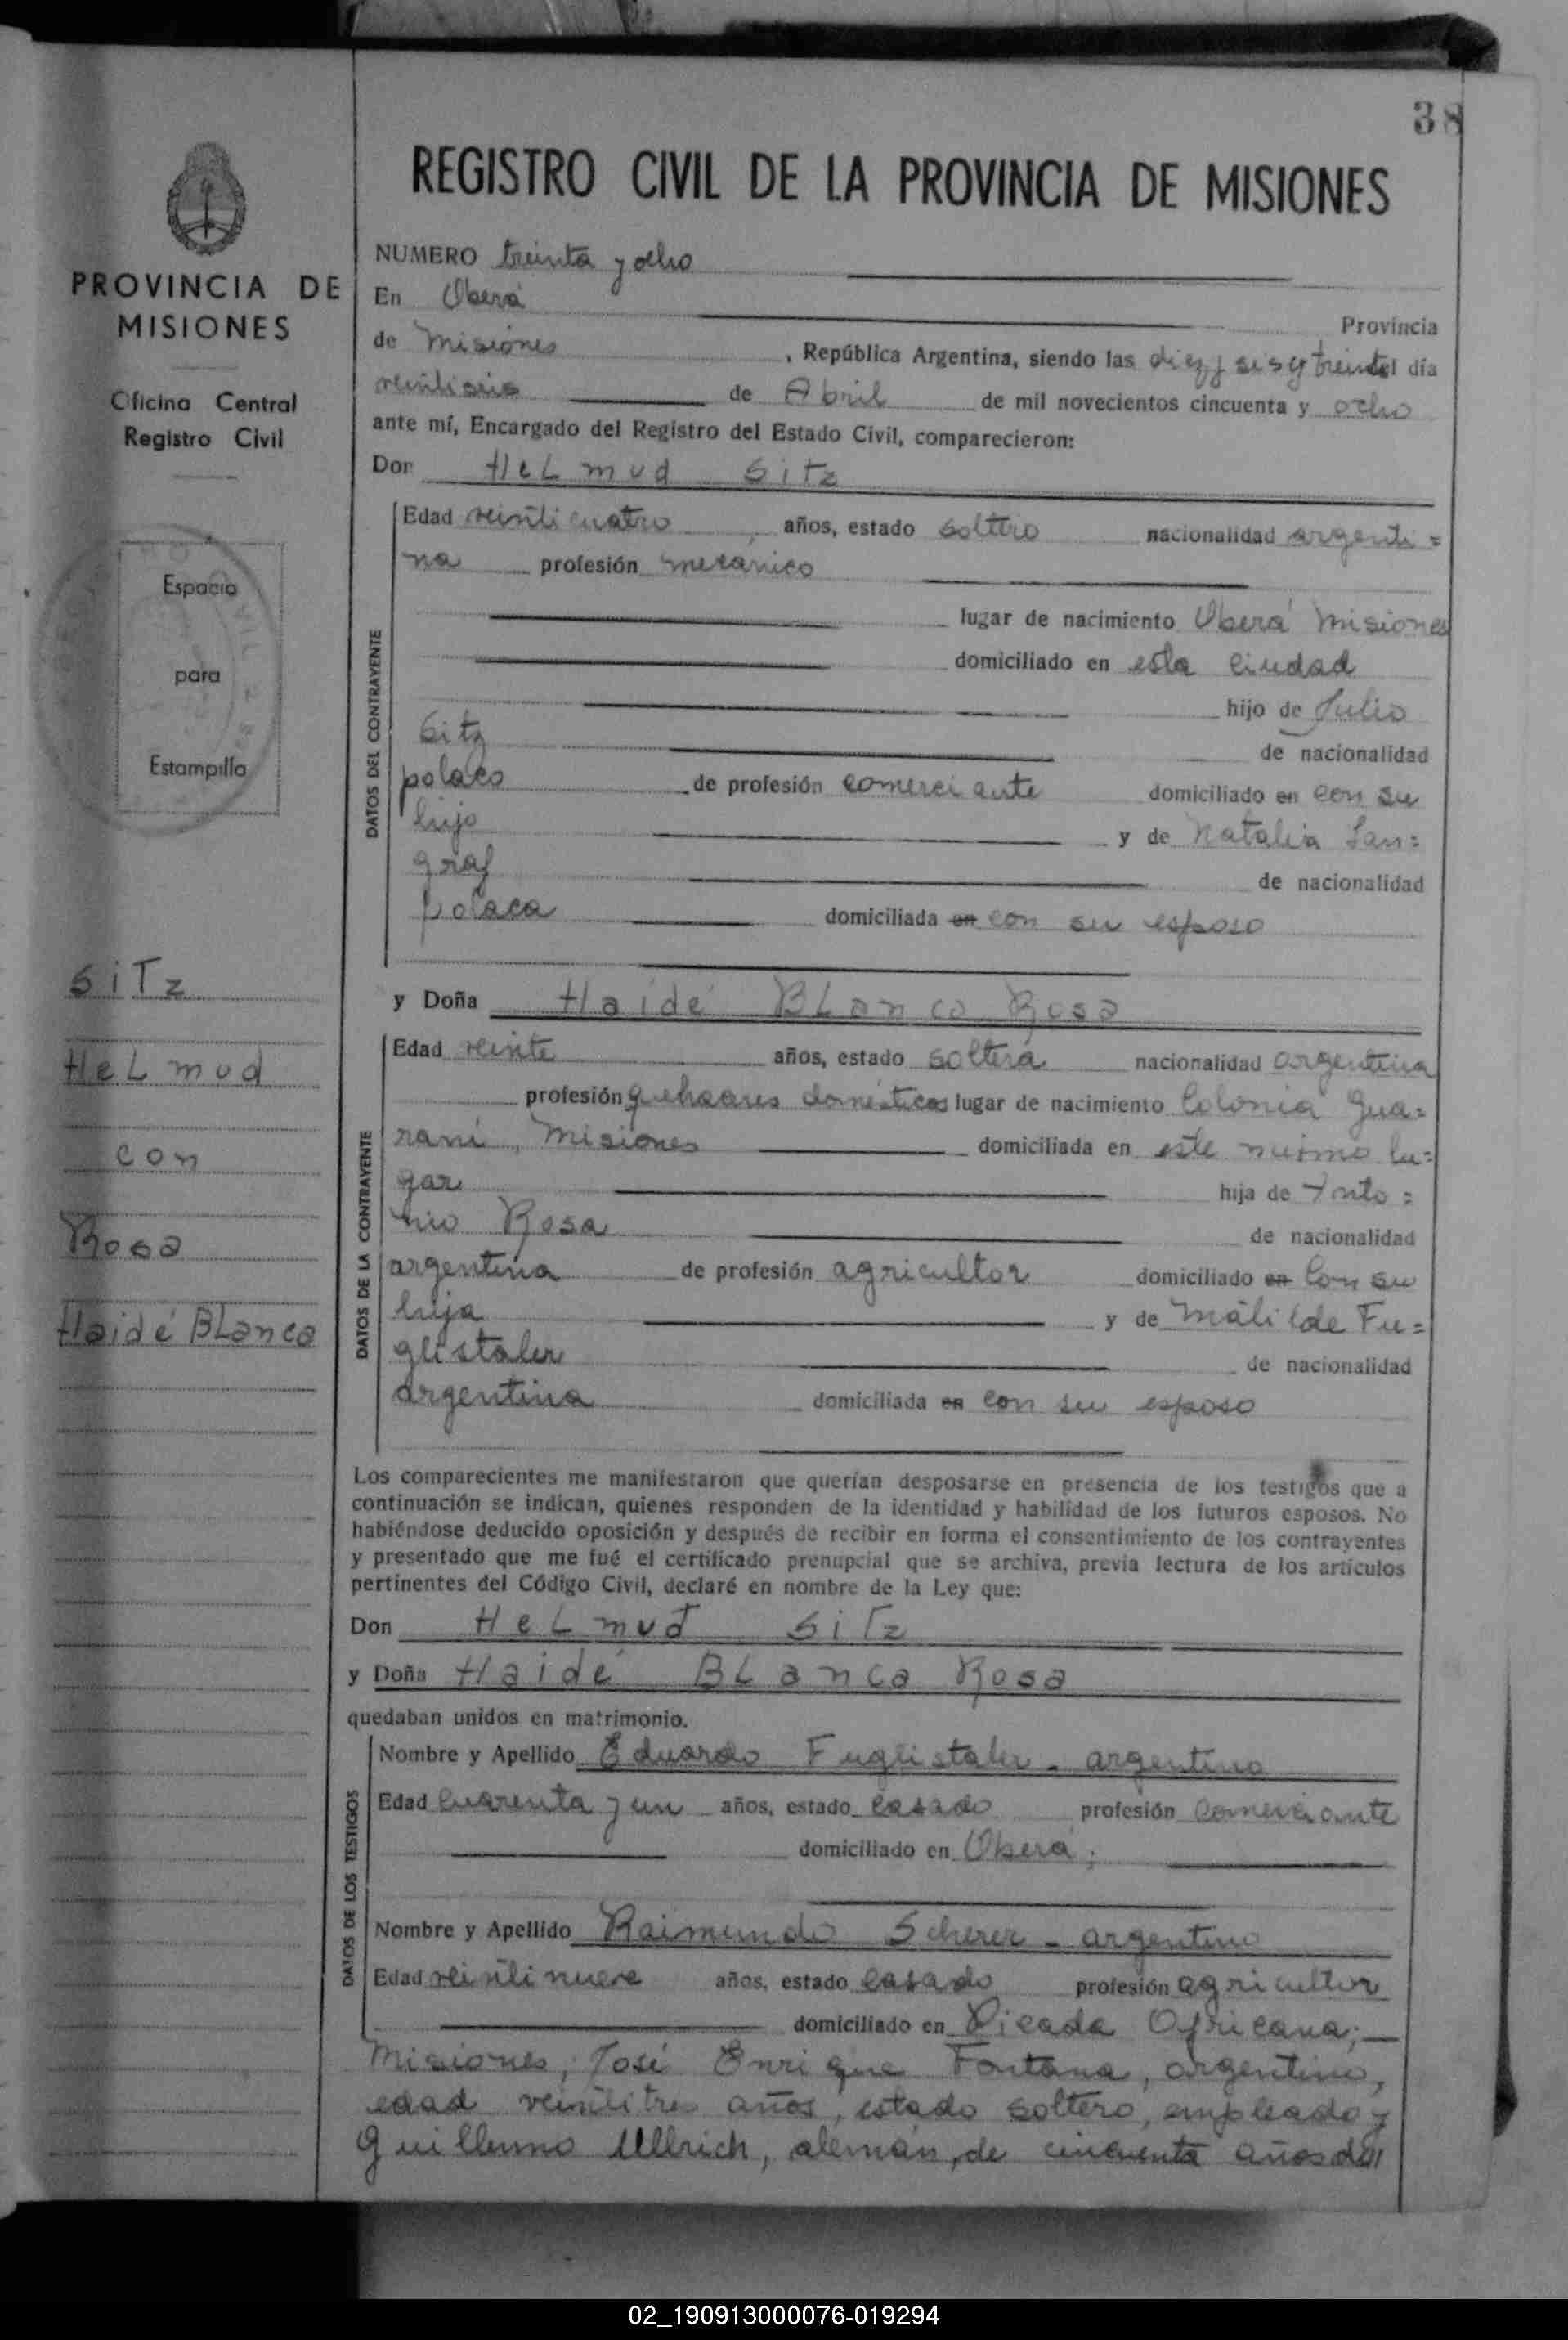 38
REGISTRO CIVIL DE LA PROVINCIA DE MISIONES
PROVINCIA DE
MISIONES
Oficina Central
Registro Civil
Espacio
para
Estampilla
SiTz
HeLmud
con
Rosa
Haidé BLanca
NUMERO treinta y ocho
En Oberá Provincia
de Misiones, República Argentina, siendo las diez y seis y treinta del día
veintiseis de Abril de mil novecientos cincuenta y ocho
ante mí, Encargado del Registro del Estado Civil, comparecieron:
Don HeLmud Sitz
DATOS DEL CONTRAYENTE
Edad veinticuatro años, estado soltero nacionalidad argenti=
na profesión mecánico
lugar de nacimiento Oberá Misiones
domiciliado en esta ciudad
hijo de Julio
Sitz de nacionalidad
polaco de profesión comerciante domiciliado en con su
hijo y de Natalia Lan=
graf de nacionalidad
polaca domiciliada en con su esposo
y Doña Haidé BLanca Rosa
DATOS DE LA CONTRAYENTE
Edad veinte años, estado soltera nacionalidad argentina
profesión quehaceres domésticos lugar de nacimiento Colonia Gua=
raní, Misiones domiciliada en este mismo lu=
gar hija de Anto=
nio Rosa de nacionalidad
argentina de profesión agricultor domiciliado en con su
hija y de Matilde Fu=
glistaler de nacionalidad
argentina domiciliada en con su esposo
Los comparecientes me manifestaron que querían desposarse en presencia de los testigos que a
continuación se indican, quienes responden de la identidad y habilidad de los futuros esposos. No
habiéndose deducido oposición y después de recibir en forma el consentimiento de los contrayentes
y presentado que me fué el certificado prenupcial que se archiva, previa lectura de los artículos
pertinentes del Código Civil, declaré en nombre de la Ley que:
Don HeLmud SiTz
y Doña Haidé BLanca Rosa
quedaban unidos en matrimonio.
DATOS DE LOS TESTIGOS
Nombre y Apellido Eduardo Fuglistaler - argentino
Edad cuarenta y un años, estado casado profesión comerciante
domiciliado en Oberá;
Nombre y Apellido Raimundo Scherer - argentino
Edad veintinueve años, estado casado profesión agricultor
domiciliado en Picada Africana;
Misiones; José Enrique Fontana, argentino,
edad veintitres años, estado soltero, empleado y
Guillermo Ullrich, alemán, de cincuenta años de
02_190913000076-019294